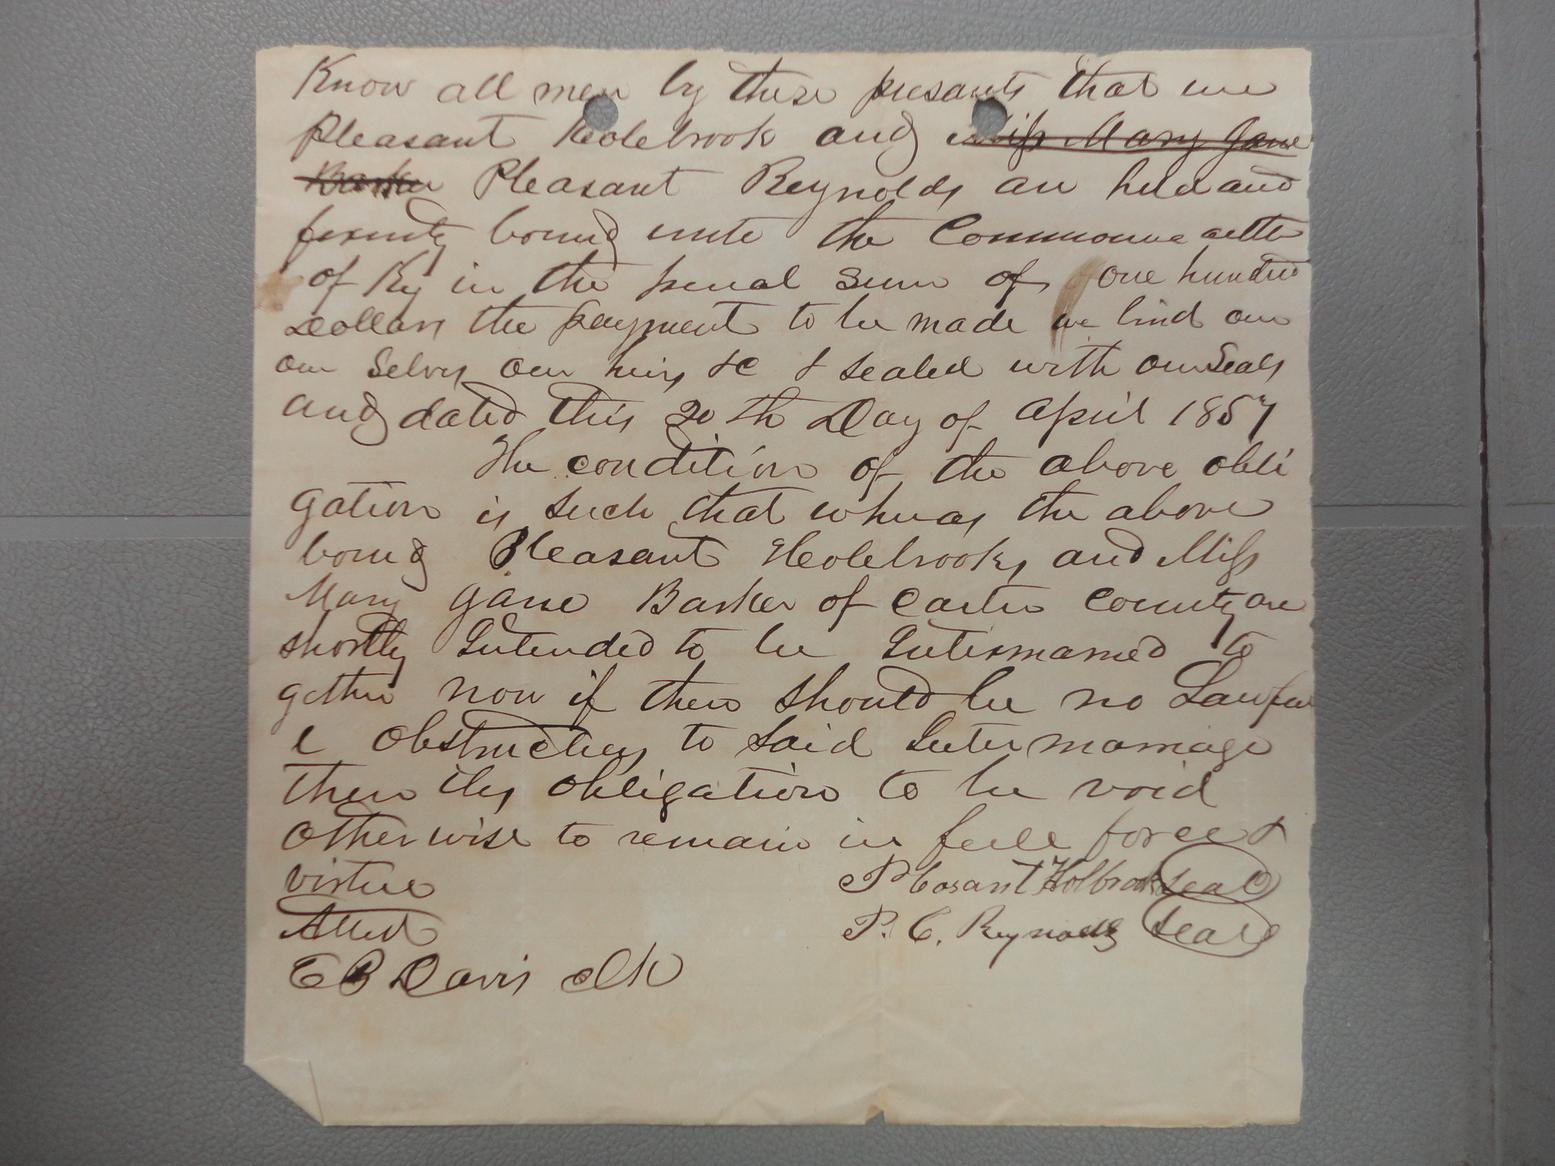 Know all men by these presants that we
Pleasant Holebrook and Miss Mary Jane
Barker Pleasant Reynolds are held and
firmly bound unto the Commonwealth
of Ky in the penal sum of one hundred
Dollars the payment to be made we bind our
our Selvs our heirs &c & sealed with our Seals
and dated this 20th Day of April 1857
The condition of the above obli
gation is such that whereas the above
bound Pleasant Holebrooks and Miss
Mary Jane Barker of Carter County are
shortly Intended to be Intermarried to
gether now if there should be no Lawfu
l Obstruction to said Intermarriage
then this obligation to be void
otherwise to remain in full force &
virtue Pleasant Holbrook Seal
Attest P. C. Reynolds Seal
E B Davis clk